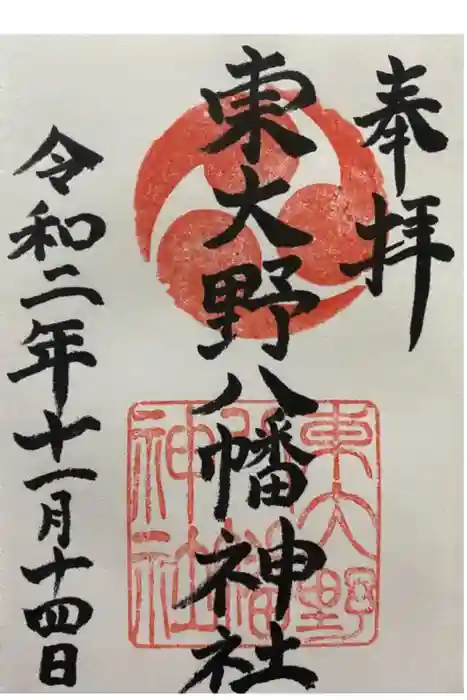 奉拝
東大野八幡神社
東大野
八幡
神社
令和二年十一月十四日